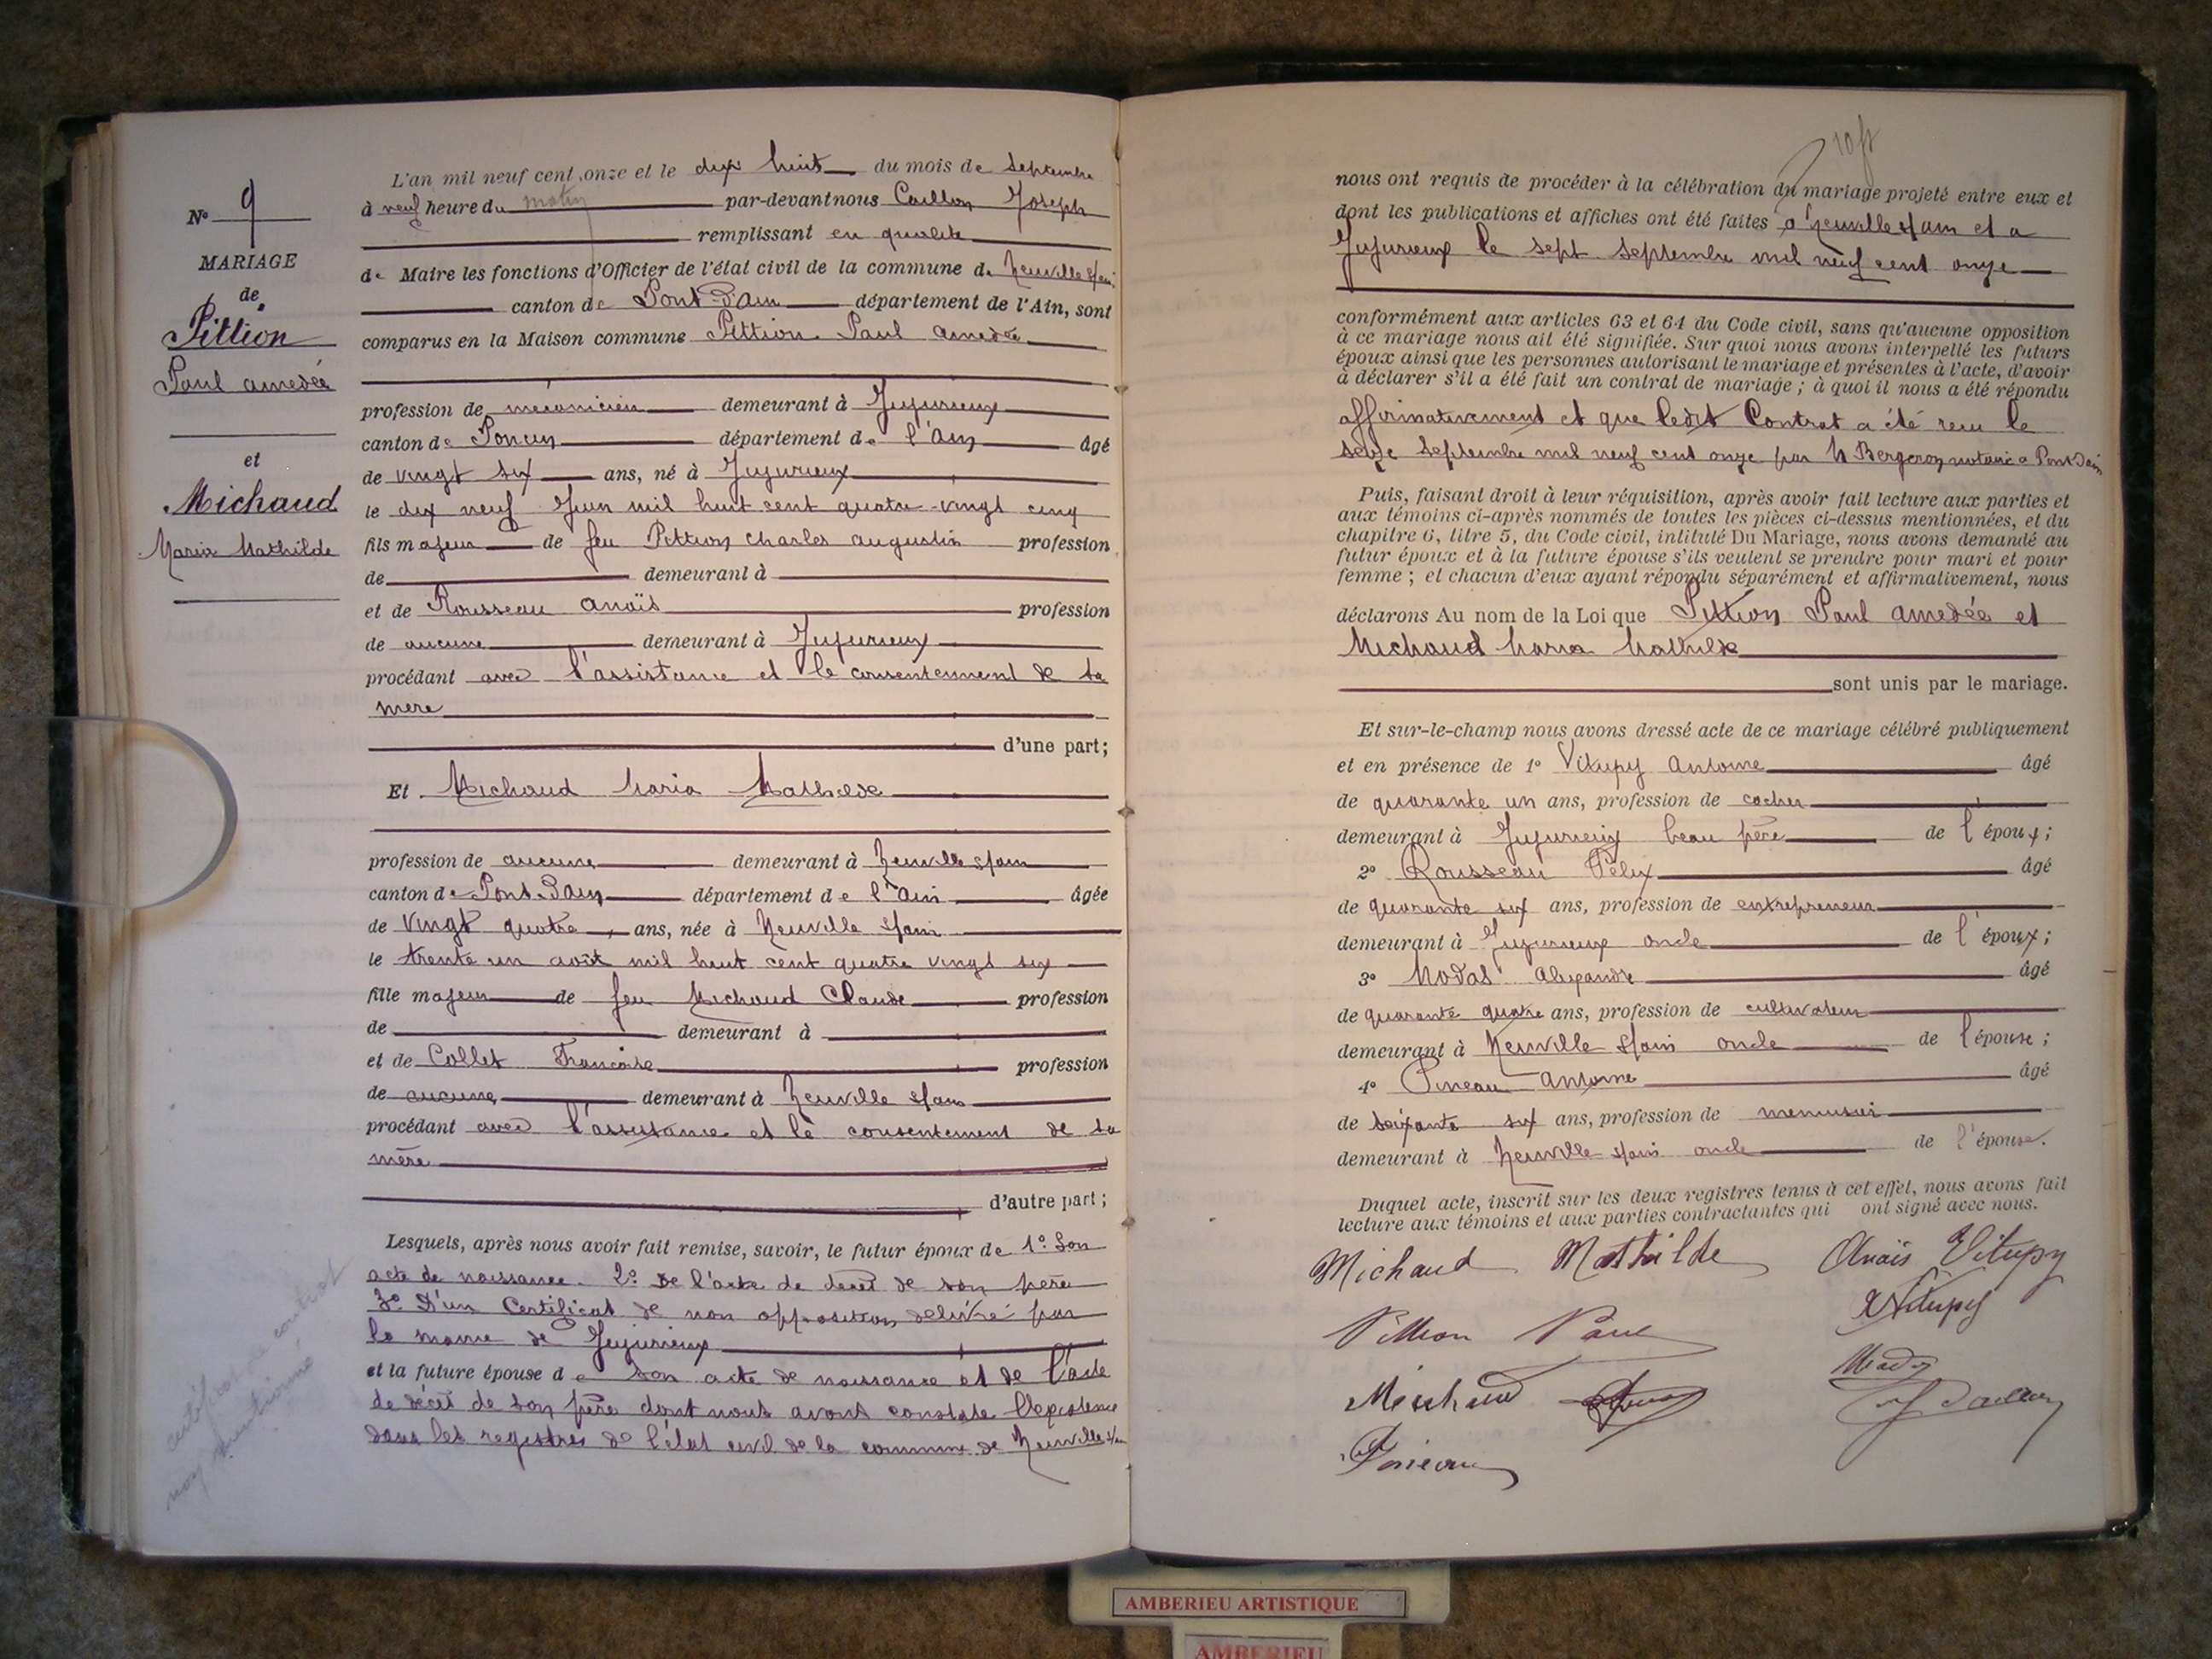 N° 9
MARIAGE
de
Pittion
Paul amedée
et
Michaud
Maria Mathilde
L'an mil neuf cent onze et le dix huit du mois de Septembre
à neuf heure du matin par-devant nous Caillon Joseph
remplissant en qualité
de Maire les fonctions d'Officier de l'état civil de la commune de Neuville s/ain
canton de Pont d'Ain département de l'Ain, sont
comparus en la Maison commune Pittion Paul amedée
profession de mécanicien demeurant à Jujurieux
canton de Poncin département de l'Ain âgé
de vingt six ans, né à Jujurieux
le dix neuf Juin mil huit cent quatre-vingt cinq
fils majeur de feu Pittion Charles augustin profession
de demeurant à
et de Rousseau anaïs profession
de aucune demeurant à Jujurieux
procédant avec l'assistance et le consentement de sa
mere
d'une part;
Et Michaud Maria Mathilde
profession de aucune demeurant à Neuville s/ain
canton de Pont-d'Ain département de l'Ain âgée
de vingt quatre ans, née à Neuville s/ain
le trente un août mil huit cent quatre vingt six
fille majeur de feu Michaud Claude profession
de demeurant à
et de Collet Françoise profession
de aucune demeurant à Neuville s/ain
procédant avec l'assistance et le consentement de sa
mère
d'autre part;
Lesquels, après nous avoir fait remise, savoir, le futur époux de 1° Son
acte de naissance. 2° de l'acte de décès de son père
3° D'un Certificat de non opposition délivré par
la mairie de Jujurieux
et la future épouse de son acte de naissance et de l'acte
de décès de son père dont nous avons constaté l'existence
dans les registres de l'état civil de la commune de Neuville s/ain
certificat de contrat
non mentionné
nous ont requis de procéder à la célébration du mariage projeté entre eux et
dont les publications et affiches ont été faites à Neuville s/ain et a
Jujurieux le sept septembre mil neuf cent onze
conformément aux articles 63 et 64 du Code civil, sans qu'aucune opposition
à ce mariage nous ait été signifiée. Sur quoi nous avons interpellé les futurs
époux ainsi que les personnes autorisant le mariage et présentes à l'acte, d'avoir
à déclarer s'il a été fait un contrat de mariage; à quoi il nous a été répondu
affirmativement et que ledit Contrat a été recu le
seize Septembre mil neuf cent onze par M Bergeron notaire a Pont d'ain
Puis, faisant droit à leur réquisition, après avoir fait lecture aux parties et
aux témoins ci-après nommés de toutes les pièces ci-dessus mentionnées, et du
chapitre 6, titre 5, du Code civil, intitulé Du Mariage, nous avons demandé au
futur époux et à la future épouse s'ils veulent se prendre pour mari et pour
femme; et chacun d'eux ayant répondu séparément et affirmativement, nous
déclarons Au nom de la Loi que Pittion Paul amedée et
Michaud Maria Mathilde
sont unis par le mariage.
Et sur-le-champ nous avons dressé acte de ce mariage célébré publiquement
et en présence de 1° Vitupy Antoine âgé
de quarante un ans, profession de cocher
demeurant à Jujurieux beau père de l'époux;
2° Rousseau Félix âgé
de quarante six ans, profession de entrepreneur
demeurant à Jujurieux oncle de l'époux;
3° Modas Alexandre âgé
de quarante quatre ans, profession de cultivateur
demeurant à Neuville s/ain oncle de l'épouse;
4° Pineau Antoine âgé
de soixante six ans, profession de menuisier
demeurant à Neuville s/ain oncle de l'épouse.
Duquel acte, inscrit sur les deux registres tenus à cet effet, nous avons fait
lecture aux témoins et aux parties contractantes qui ont signé avec nous.
Michaud Mathilde Anaïs Vitupy
Pittion Paul Vitupy
Michaud
Pineau
AMBERIEU ARTISTIQUE
AMBERIEU